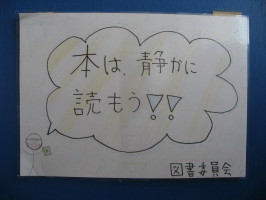 本は、静かに
読もう!!
図書委員会